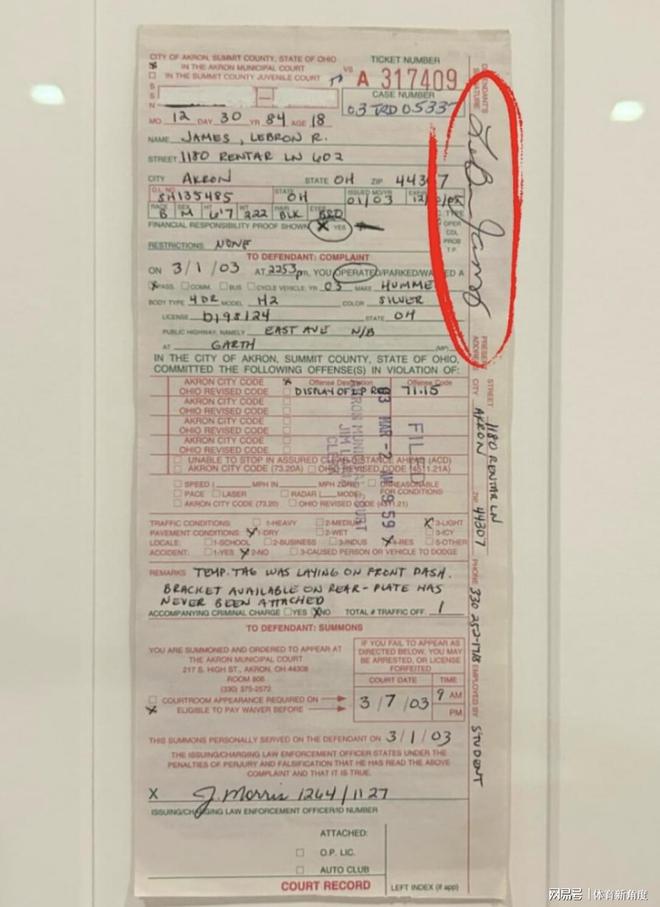 CITY OF AKRON, SUMMIT COUNTY, STATE OF OHIO
IN THE AKRON MUNICIPAL COURT
IN THE SUMMIT COUNTY JUVENILE COURT
TICKET NUMBER
A 317409
CASE NUMBER
03 TRD 05337
S
S
N
MO 12 DAY 30 YR 84 AGE 18
NAME JAMES, LEBRON R.
STREET 1180 RENTAR LN 602
CITY AKRON STATE OH ZIP 44307
O.L. NO. STATE ISSUED MO/YR
SH135485 OH 01/03
RACE SEX HT WT HAIR EYES
B M 6'7 222 BLK BRO
FINANCIAL RESPONSIBILITY PROOF SHOWN X YES
RESTRICTIONS NONE
TO DEFENDANT: COMPLAINT
ON 3/1/03 AT 2253 pm, YOU OPERATED/PARKED/WALKED A
X PASS. COMM. BUS CYCLE VEHICLE: YR 03 MAKE HUMME
BODY TYPE 4DR MODEL H2 COLOR SILVER
LICENSE D198124 STATE OH
PUBLIC HIGHWAY, NAMELY EAST AVE N/B
AT GARTH (MP)
IN THE CITY OF AKRON, SUMMIT COUNTY, STATE OF OHIO,
COMMITTED THE FOLLOWING OFFENSE(S) IN VIOLATION OF:
AKRON CITY CODE X Offense Description Offense Code
OHIO REVISED CODE DISPLAY OF LP RE 71.15
AKRON CITY CODE
OHIO REVISED CODE
AKRON CITY CODE
OHIO REVISED CODE
AKRON CITY CODE
OHIO REVISED CODE
FILED
03 MAR -2 AM 9:59
AKRON MUNICIPAL COURT
CLERK
UNABLE TO STOP IN ASSURED CLEAR DISTANCE AHEAD (ACD)
AKRON CITY CODE (73.20A) OHIO REVISED CODE (4511.21A)
SPEED MPH IN MPH ZONE UNREASONABLE
PACE LASER RADAR ( MODE) FOR CONDITIONS
AKRON CITY CODE (73.20) OHIO REVISED CODE (4511.21)
TRAFFIC CONDITIONS: 1-HEAVY 2-MEDIUM X 3-LIGHT
PAVEMENT CONDITIONS: X 1-DRY 2-WET 3-ICY
LOCALE: 1-SCHOOL 2-BUSINESS 3-INDUS X 4-RES 5-OTHER
ACCIDENT: 1-YES X 2-NO 3-CAUSED PERSON OR VEHICLE TO DODGE
REMARKS TEMP. TAG WAS LAYING ON FRONT DASH.
BRACKET AVAILABLE ON REAR - PLATE HAS
NEVER BEEN ATTACHED
ACCOMPANYING CRIMINAL CHARGE YES X NO TOTAL # TRAFFIC OFF. 1
TO DEFENDANT: SUMMONS
YOU ARE SUMMONED AND ORDERED TO APPEAR AT
THE AKRON MUNICIPAL COURT
217 S. HIGH ST., AKRON, OH 44308
ROOM 806
(330) 375-2572
COURTROOM APPEARANCE REQUIRED ON
X ELIGIBLE TO PAY WAIVER BEFORE
IF YOU FAIL TO APPEAR AS
DIRECTED BELOW, YOU MAY
BE ARRESTED, OR LICENSE
FORFEITED
COURT DATE TIME
3/7/03 9 AM
PM
THIS SUMMONS PERSONALLY SERVED ON THE DEFENDANT ON 3/1/03
THE ISSUING/CHARGING LAW ENFORCEMENT OFFICER STATES UNDER THE
PENALTIES OF PERJURY AND FALSIFICATION THAT HE HAS READ THE ABOVE
COMPLAINT AND THAT IT IS TRUE.
X J. Morris 1264/1127
ISSUING/CHARGING LAW ENFORCEMENT OFFICER/ID NUMBER
ATTACHED:
O.P. LIC.
AUTO CLUB
COURT RECORD
LEFT INDEX (if app)
DEFENDANT'S SIGNATURE LeBron James
PRESENT ADDRESS STREET 1180 RENTAR LN
CITY AKRON ZIP 44307 PHONE 330 252-1718 EMPLOYED BY STUDENT
网易号 | 体育新角度